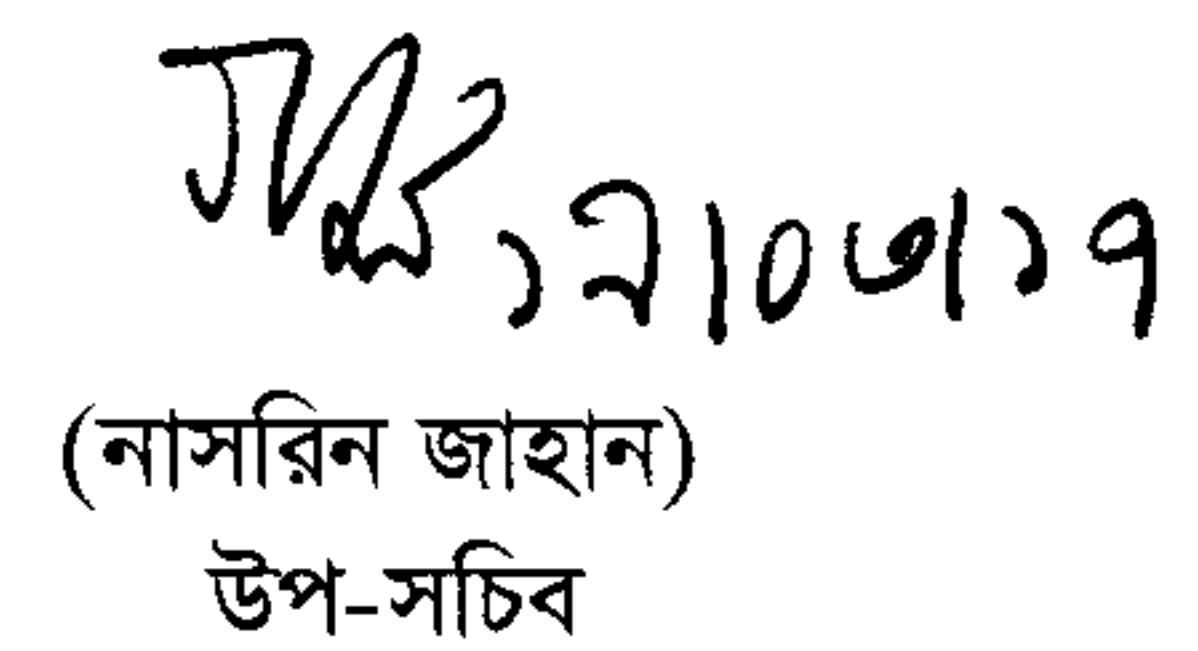 ১২|০৩|১৭
(নাসরিন জাহান)
উপ-সচিব